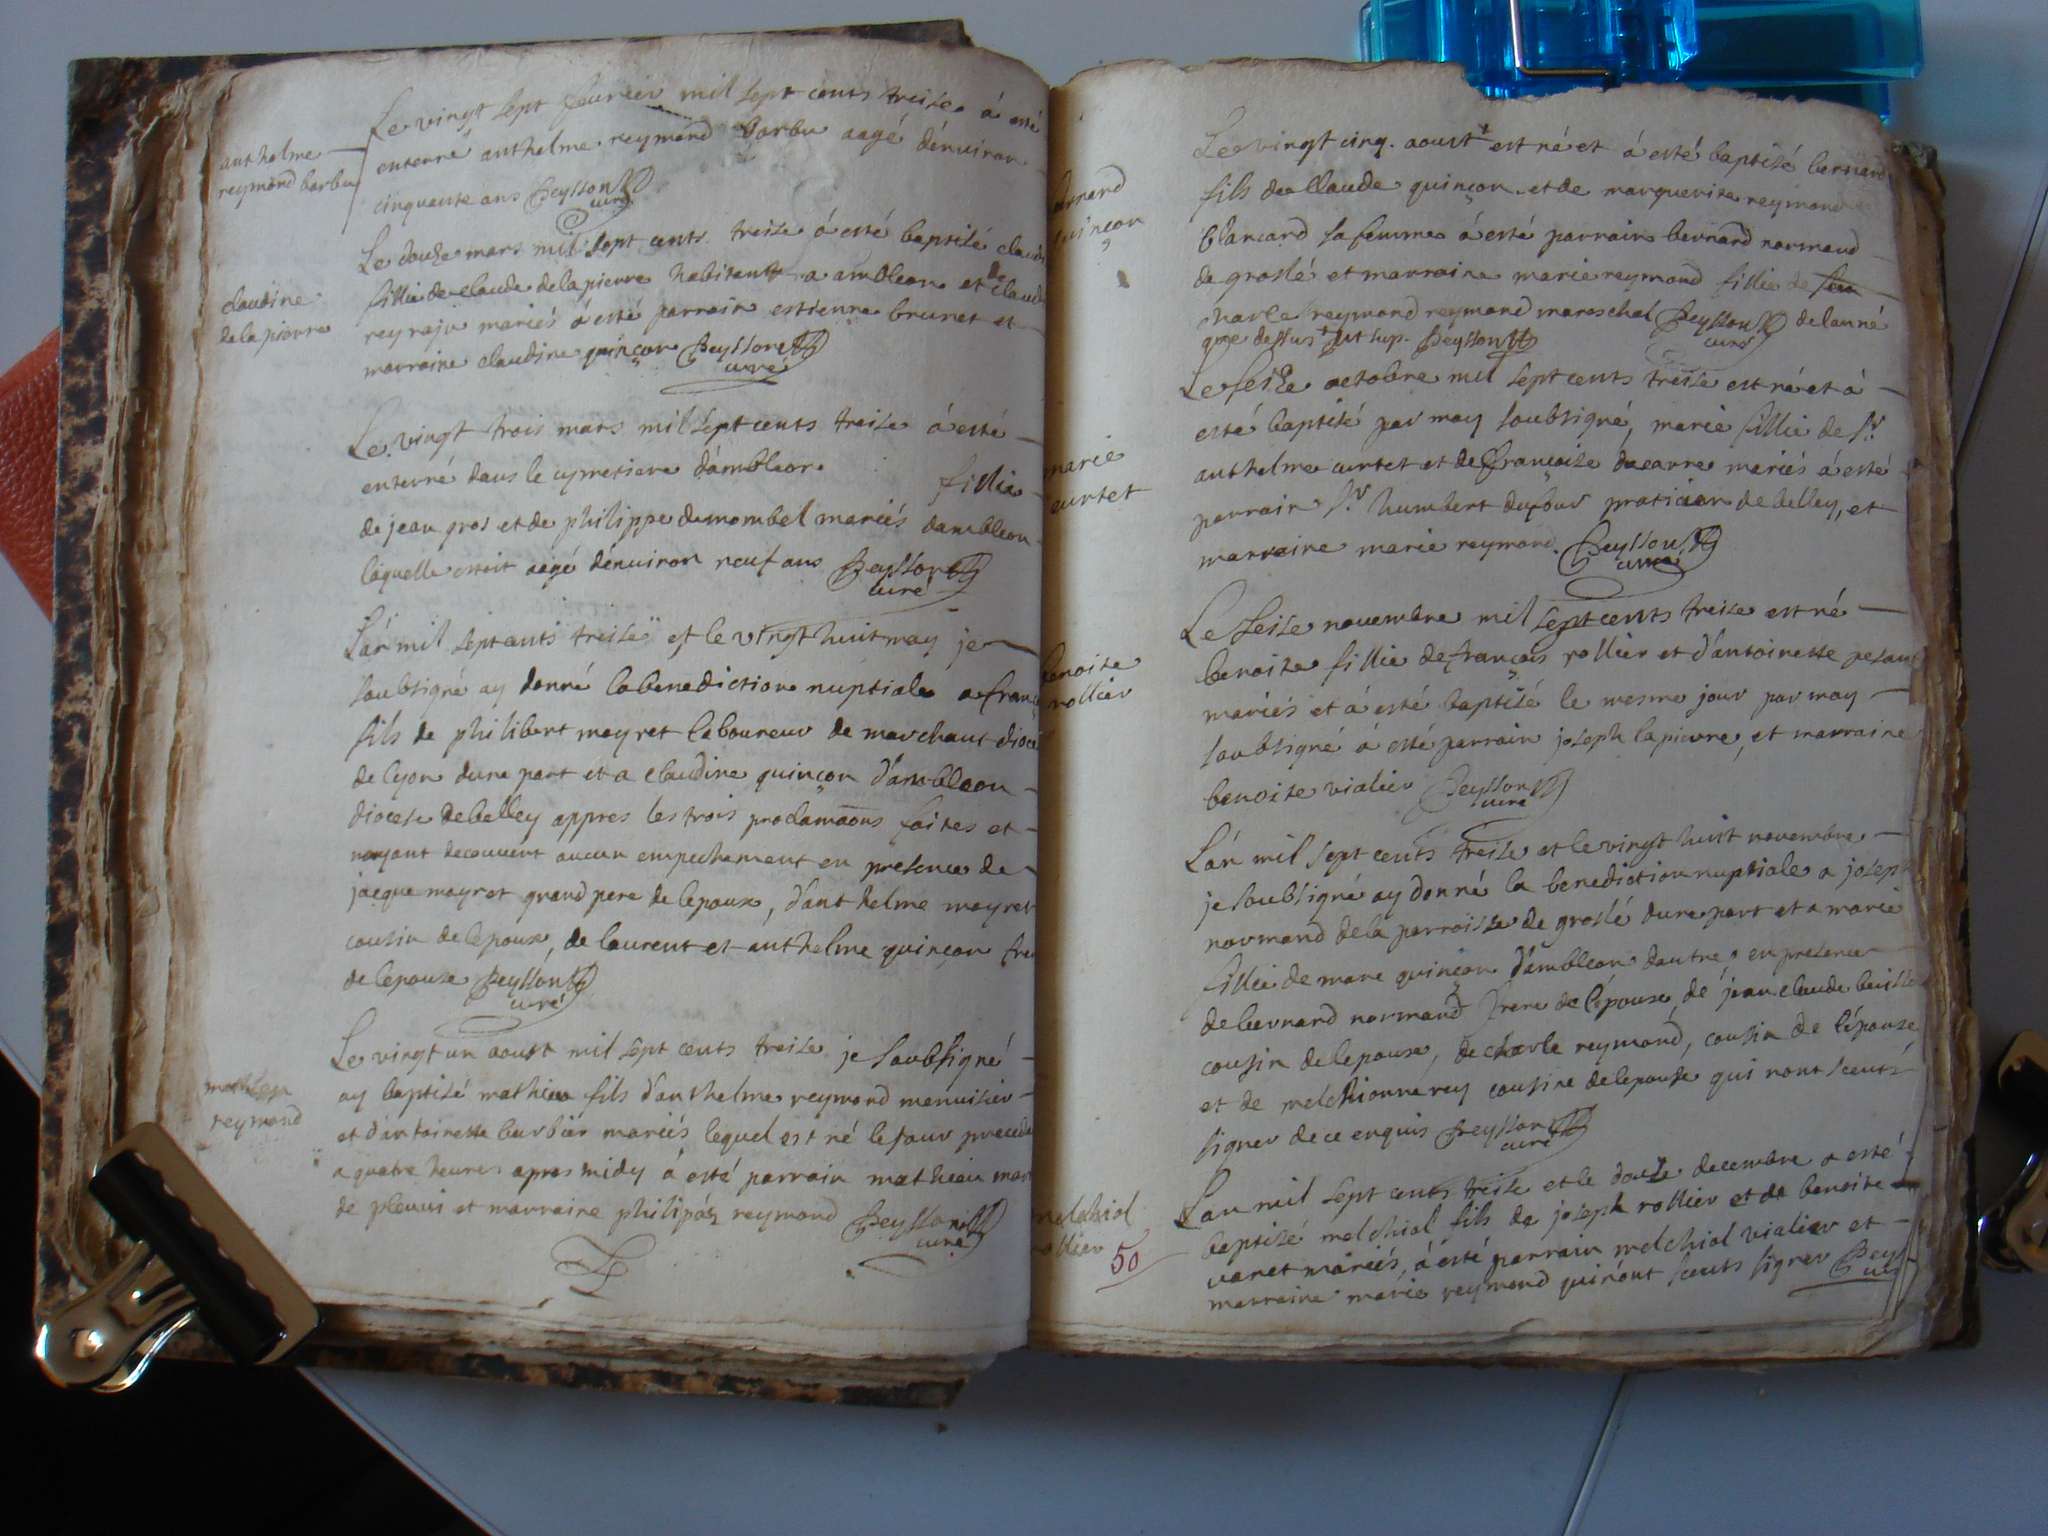 Le vingt sept feurier mil sept cents treise á esté
anthelme
reymond barbu
enterré anthelme reymond barbu aagé dénuiron
cinquante ans Beysson
curé
Le douze mars mil sept cents treise á esté baptisé claud
claudine
de la pierre
fillie de claude de la pierre habitant a ambleon et de claud
rey raju mariés á esté parrain estienne brunet et
marraine claudine quinçon Beysson
curé
Le vingt trois mars mil sept cents treise á esté
enterré dans le cymetiere d'ambleon
fillie
de jean gros et de philippe demombel mariés dambleon
laquelle estoit aagé dénuiron neuf ans Beysson
curé
L'an mil sept cents treise et le vingt huit may je
soubsigné ay donné la benediction nuptiale a franc
fils de philibert meyret laboureur de marchant dioce
de lyon dune part et a claudine quinçon d'ambleon
diocese de belley appres les trois proclamaons faites et
nayant decouvert aucun empechement en presence de
jacque meyret grand pere de lepoux, d'anthelme meyret
cousin de lepoux, de laurent et anthelme quinçon fre
de lepouse Beysson
curé
Le vingt un aoust mil sept cents treise je soubsigné
mathieu
reymond
ay baptisé mathieu fils d'anthelme reymond menuisier
et d'antoinette barbier mariés lequel est né le jour precede
a quatre heures apres midy á esté parrain mathieu mar
de pleuui et marraine philipa reymond Beysson
curé
Le vingt cinq aoust est né et á esté baptisé bernard
bernard
quinçon
fils de Claude quinçon et de marguerite reymond
blancard sa femme á esté parrain bernard normand
de groslé et marraine marie reymond fillie de feu
charle reymond reymond mareschal Beysson de lanné
curé
que dessus ut sup. Beysson
Le seize octobre mil sept cents treise est né et á
esté baptisé par moy soubsigné, marie fillie de sr
marie
curtet
anthelme curtet et de françoise ducarre mariés á esté
parrain sr humbert dufour praticien de belley, et
marraine marie reymond Beysson
curé
Le seise novembre mil sept cents treise est né
benoite
rollier
benoite fillie de françois rollier et d'antoinette pesant
mariés et á esté baptisé le mesme jour par moy
soubsigné á esté parrain joseph lapierre, et marraine
benoite vialier Beysson
curé
L'an mil sept cents treise et le vingt huit novembre
je soubsigné ay donné la benediction nuptiale a joseph
normand de la parroisse de groslé dune part et a marie
fillie de marc quinçon d'ambleon dautre, en presence
de bernard normand frere de lépoux, de jean claude
cousin de lepoux, de charle reymond, cousin de lépouse
et de melchionne rey cousine de lepouse qui nont sceuts
signer de ce enquis Beysson
curé
L'an mil sept cents treise et le douze decembre a esté
melchiol
rollier
50
baptisé melchiol fils de joseph rollier et de benoite
varet mariés, á esté parrain melchiol vialier et
marraine marie reymond qui n'ont sceuts signer Bey
curé